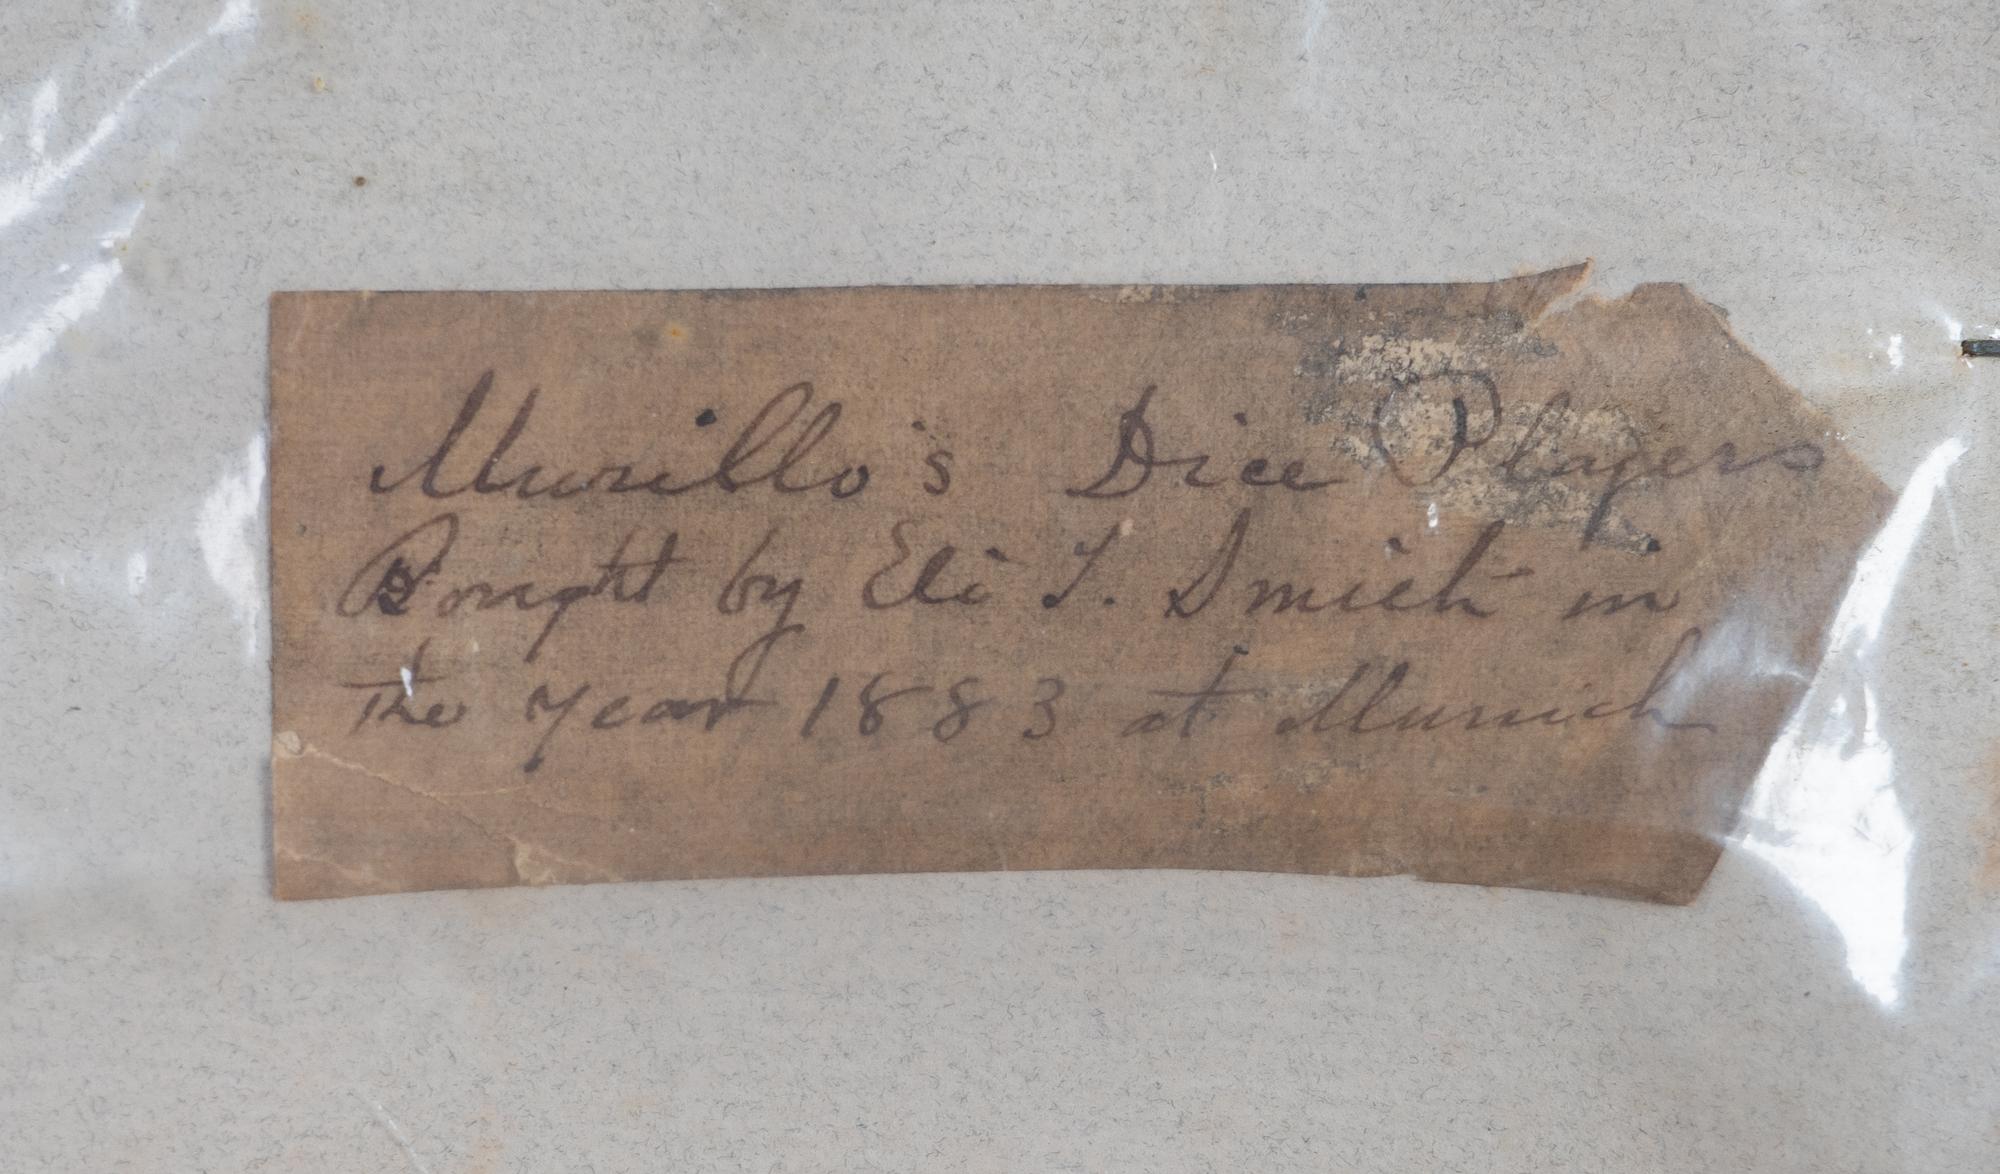 Murillo's Dice Players
Bought by Eli T. Smith in
the year 1883 at Munich